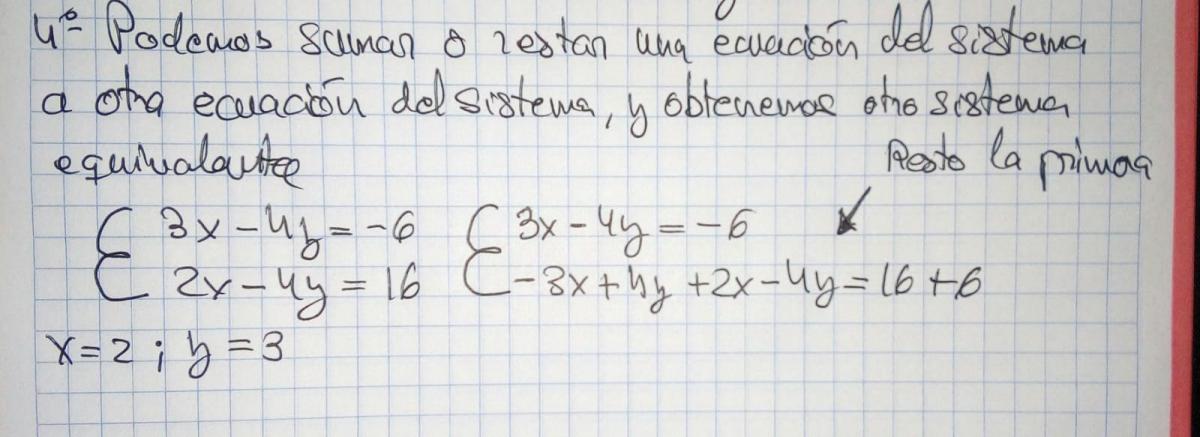 4º- Podemos sumar o restar una ecuación del sistema
a otra ecuación del sistema, y obtenemos otro sistema
equivalente
Resto la primera
{ 3x - 4y = -6 { 3x - 4y = -6
{ 2x - 4y = 16 { -3x + 4y + 2x - 4y = 16 + 6
x = 2 ; y = 3